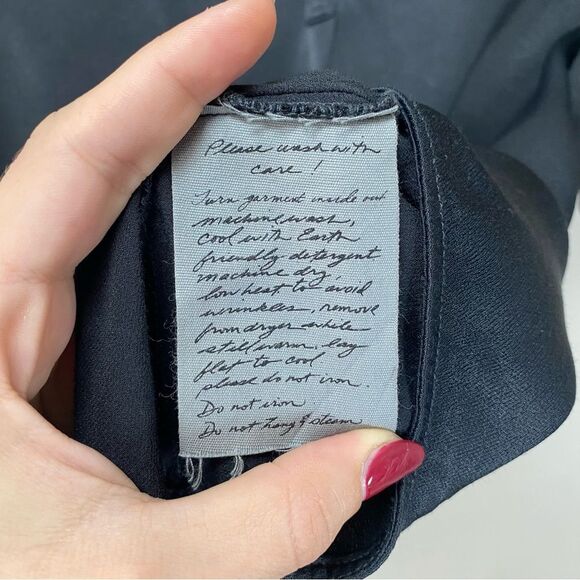 Please wash with
care!
Turn garment inside out
machine wash,
cool with Earth
friendly detergent
machine dry,
low heat to avoid
wrinkles, remove
from dryer while
still warm, lay
flat to cool
please do not iron.
Do not iron
Do not hang & steam